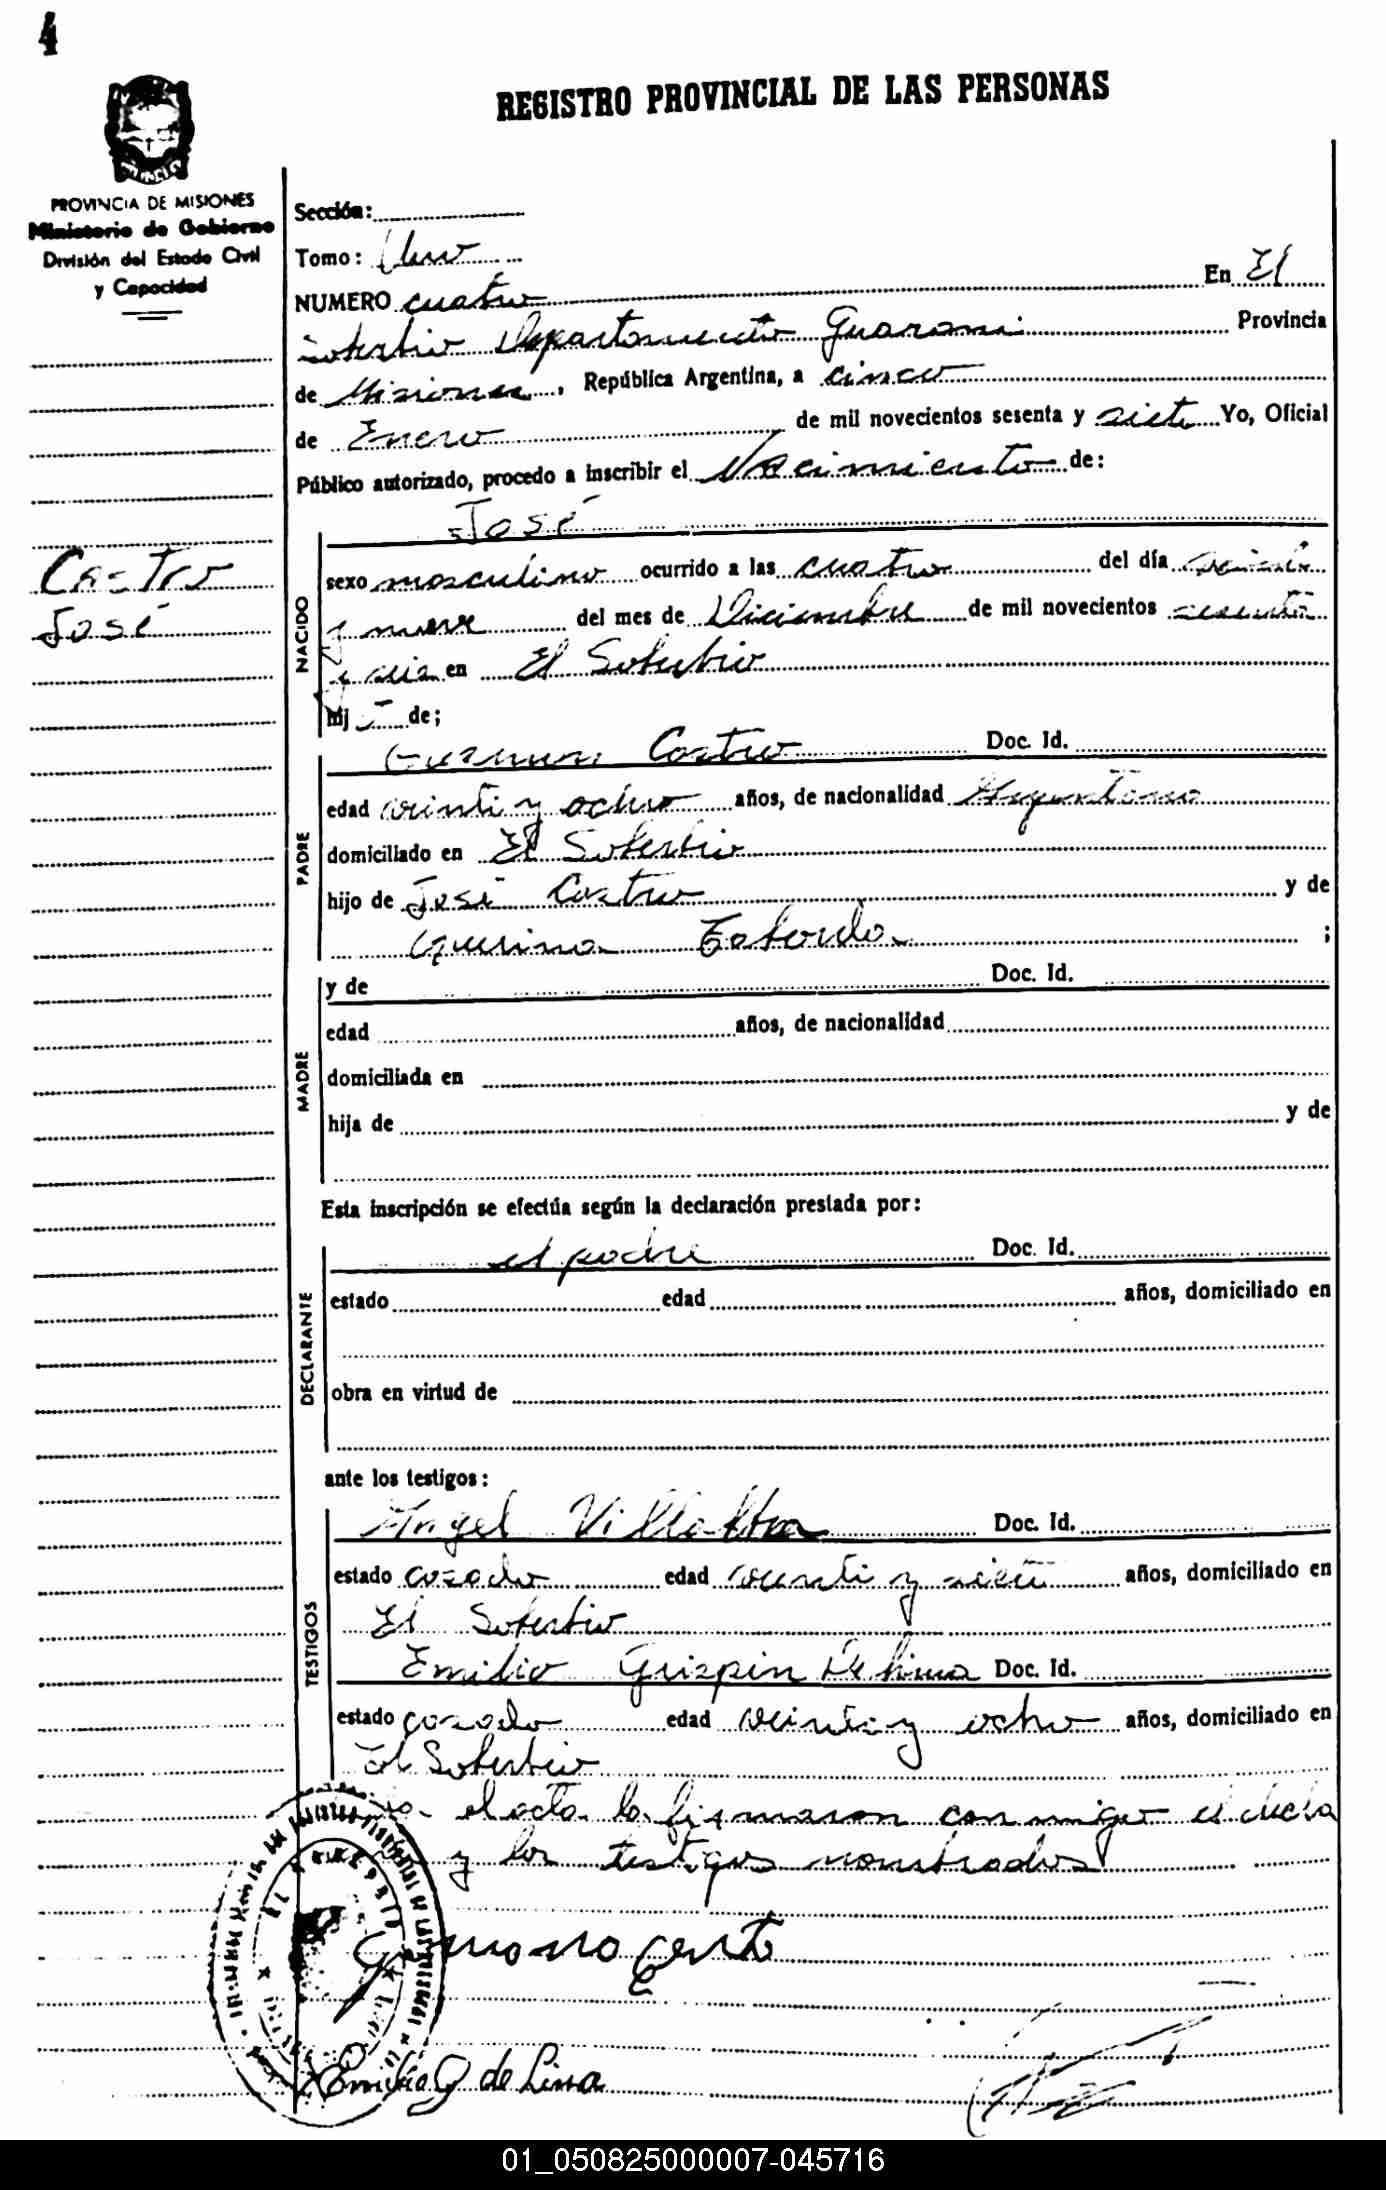 4
REGISTRO PROVINCIAL DE LAS PERSONAS
PROVINCIA DE MISIONES
Ministerio de Gobierno
División del Estado Civil
y Capacidad
Sección:
Tomo: Uno
NUMERO cuatro En El
Soberbio Departamento Guarani Provincia
de Misiones, República Argentina, a cinco
de Enero de mil novecientos sesenta y siete Yo, Oficial
Público autorizado, procedo a inscribir el Nacimiento de:
José
Castro
José
NACIDO
sexo masculino ocurrido a las cuatro del día veinte
y nueve del mes de Diciembre de mil novecientos sesenta
y seis en El Soberbio
hijo de;
PADRE
Castro Doc. Id.
edad veinti y ocho años, de nacionalidad Argentino
domiciliado en El Soberbio
hijo de José Castro y de
Taborda ;
MADRE
y de Doc. Id.
edad años, de nacionalidad
domiciliada en
hija de y de
Esta inscripción se efectúa según la declaración prestada por:
DECLARANTE
el padre Doc. Id.
estado edad años, domiciliado en
obra en virtud de
ante los testigos:
TESTIGOS
Angel Villalba Doc. Id.
estado casado edad veinti y siete años, domiciliado en
El Soberbio
Emilio Grispin De Lima Doc. Id.
estado casado edad veinti y ocho años, domiciliado en
El Soberbio
el acta la firmaron con migo el decla
y los testigos nonbrados
EL SOBERBIO
Emilio G de Lima
01_050825000007-045716